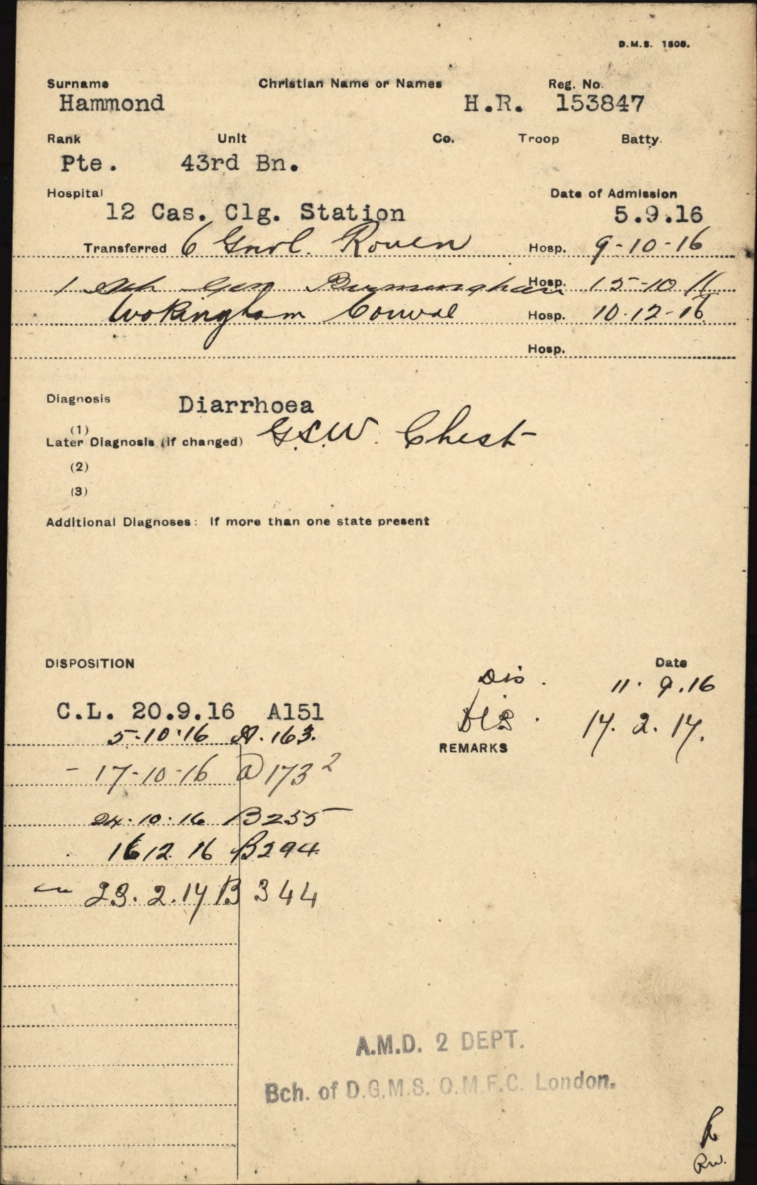 D.M.S. 1300.
Surname Christian Name or Names Reg. No.
Hammond H.R. 153847
Rank Unit Co. Troop Batty.
Pte. 43rd Bn.
Hospital Date of Admission
12 Cas. Clg. Station 5.9.16
Transferred 6 Gnrl. Rouen Hosp. 9-10-16
1 Sth Gen Birmingham Hosp. 15-10 16
Wokingham Conval Hosp. 10.12-16
Hosp.
Diagnosis Diarrhoea
(1)
Later Diagnosis (if changed) G.S.W. Chest
(2)
(3)
Additional Diagnoses: If more than one state present
DISPOSITION Date
Dis. 11.9.16
C.L. 20.9.16 A151 Dis. 17.2.17.
5-10-16 A.163. REMARKS
- 17-10-16 A 173 2
24.10.16 B255
16 12 16 B294
23.2.17 B 344
A.M.D. 2 DEPT.
Bch. of D.G.M.S. O.M.F.C. London.
RW.